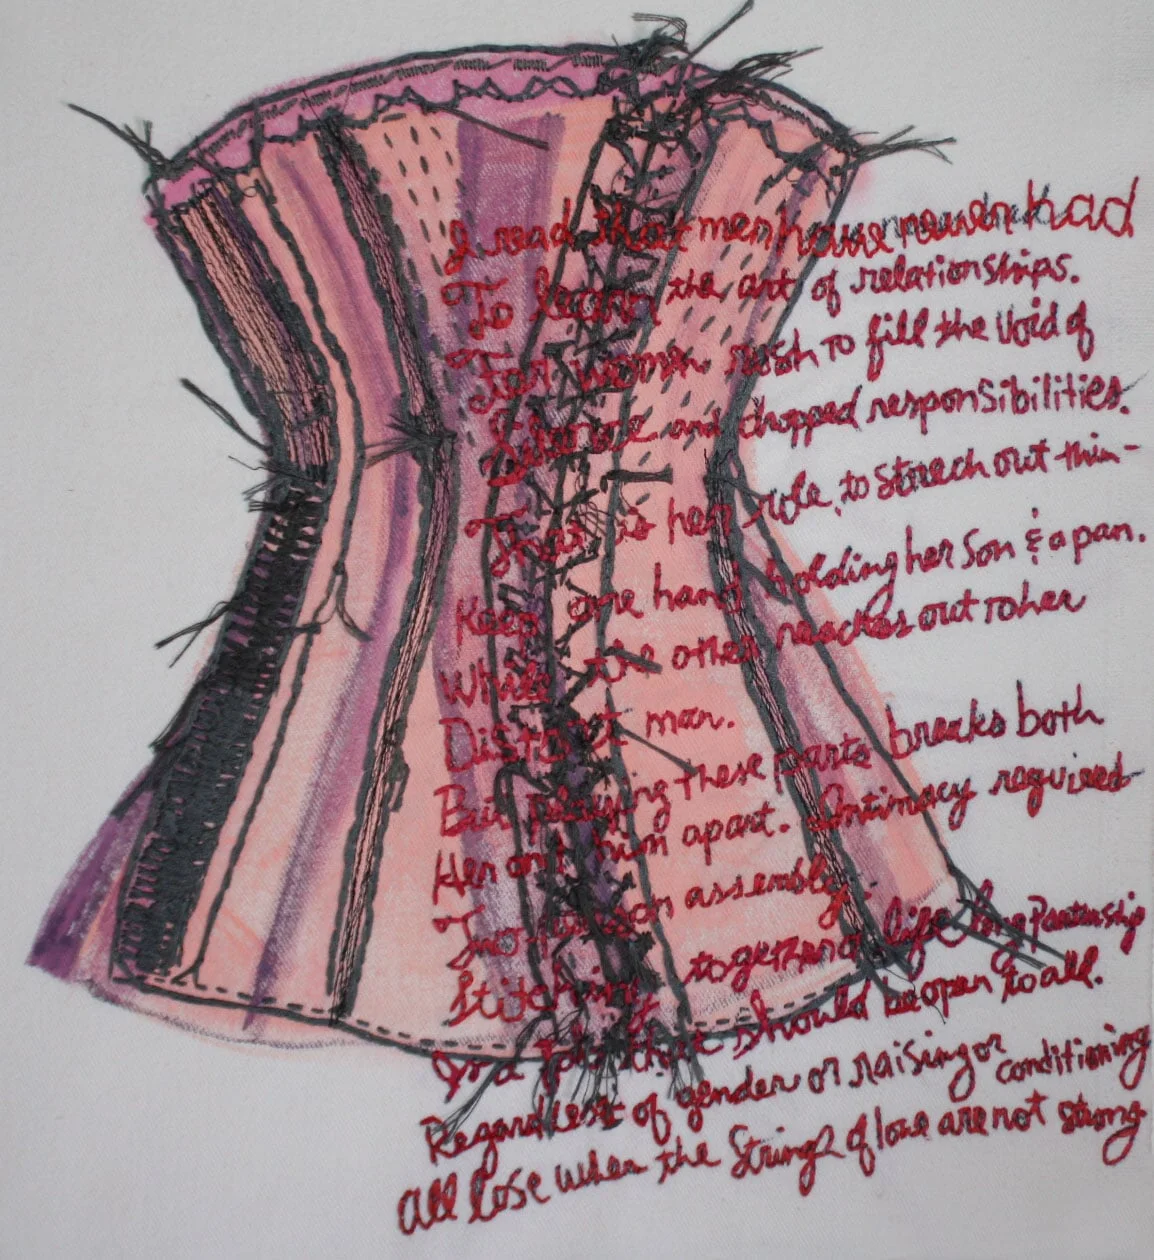 I read that men have never had
To learn the art of relationships.
For women rush to fill the void of
and dropped responsibilities.
That is her role, to streach out thin-
Keep one hand holding her son & a pan.
While the other reaches out to her
Distant man.
But playing these parts breaks both
Her and him apart. Intimacy required
assembly.
Stitching together a life long Partnership
should be open to all.
Regardless of gender or raising or conditioning
All lose when the Strings of love are not strong